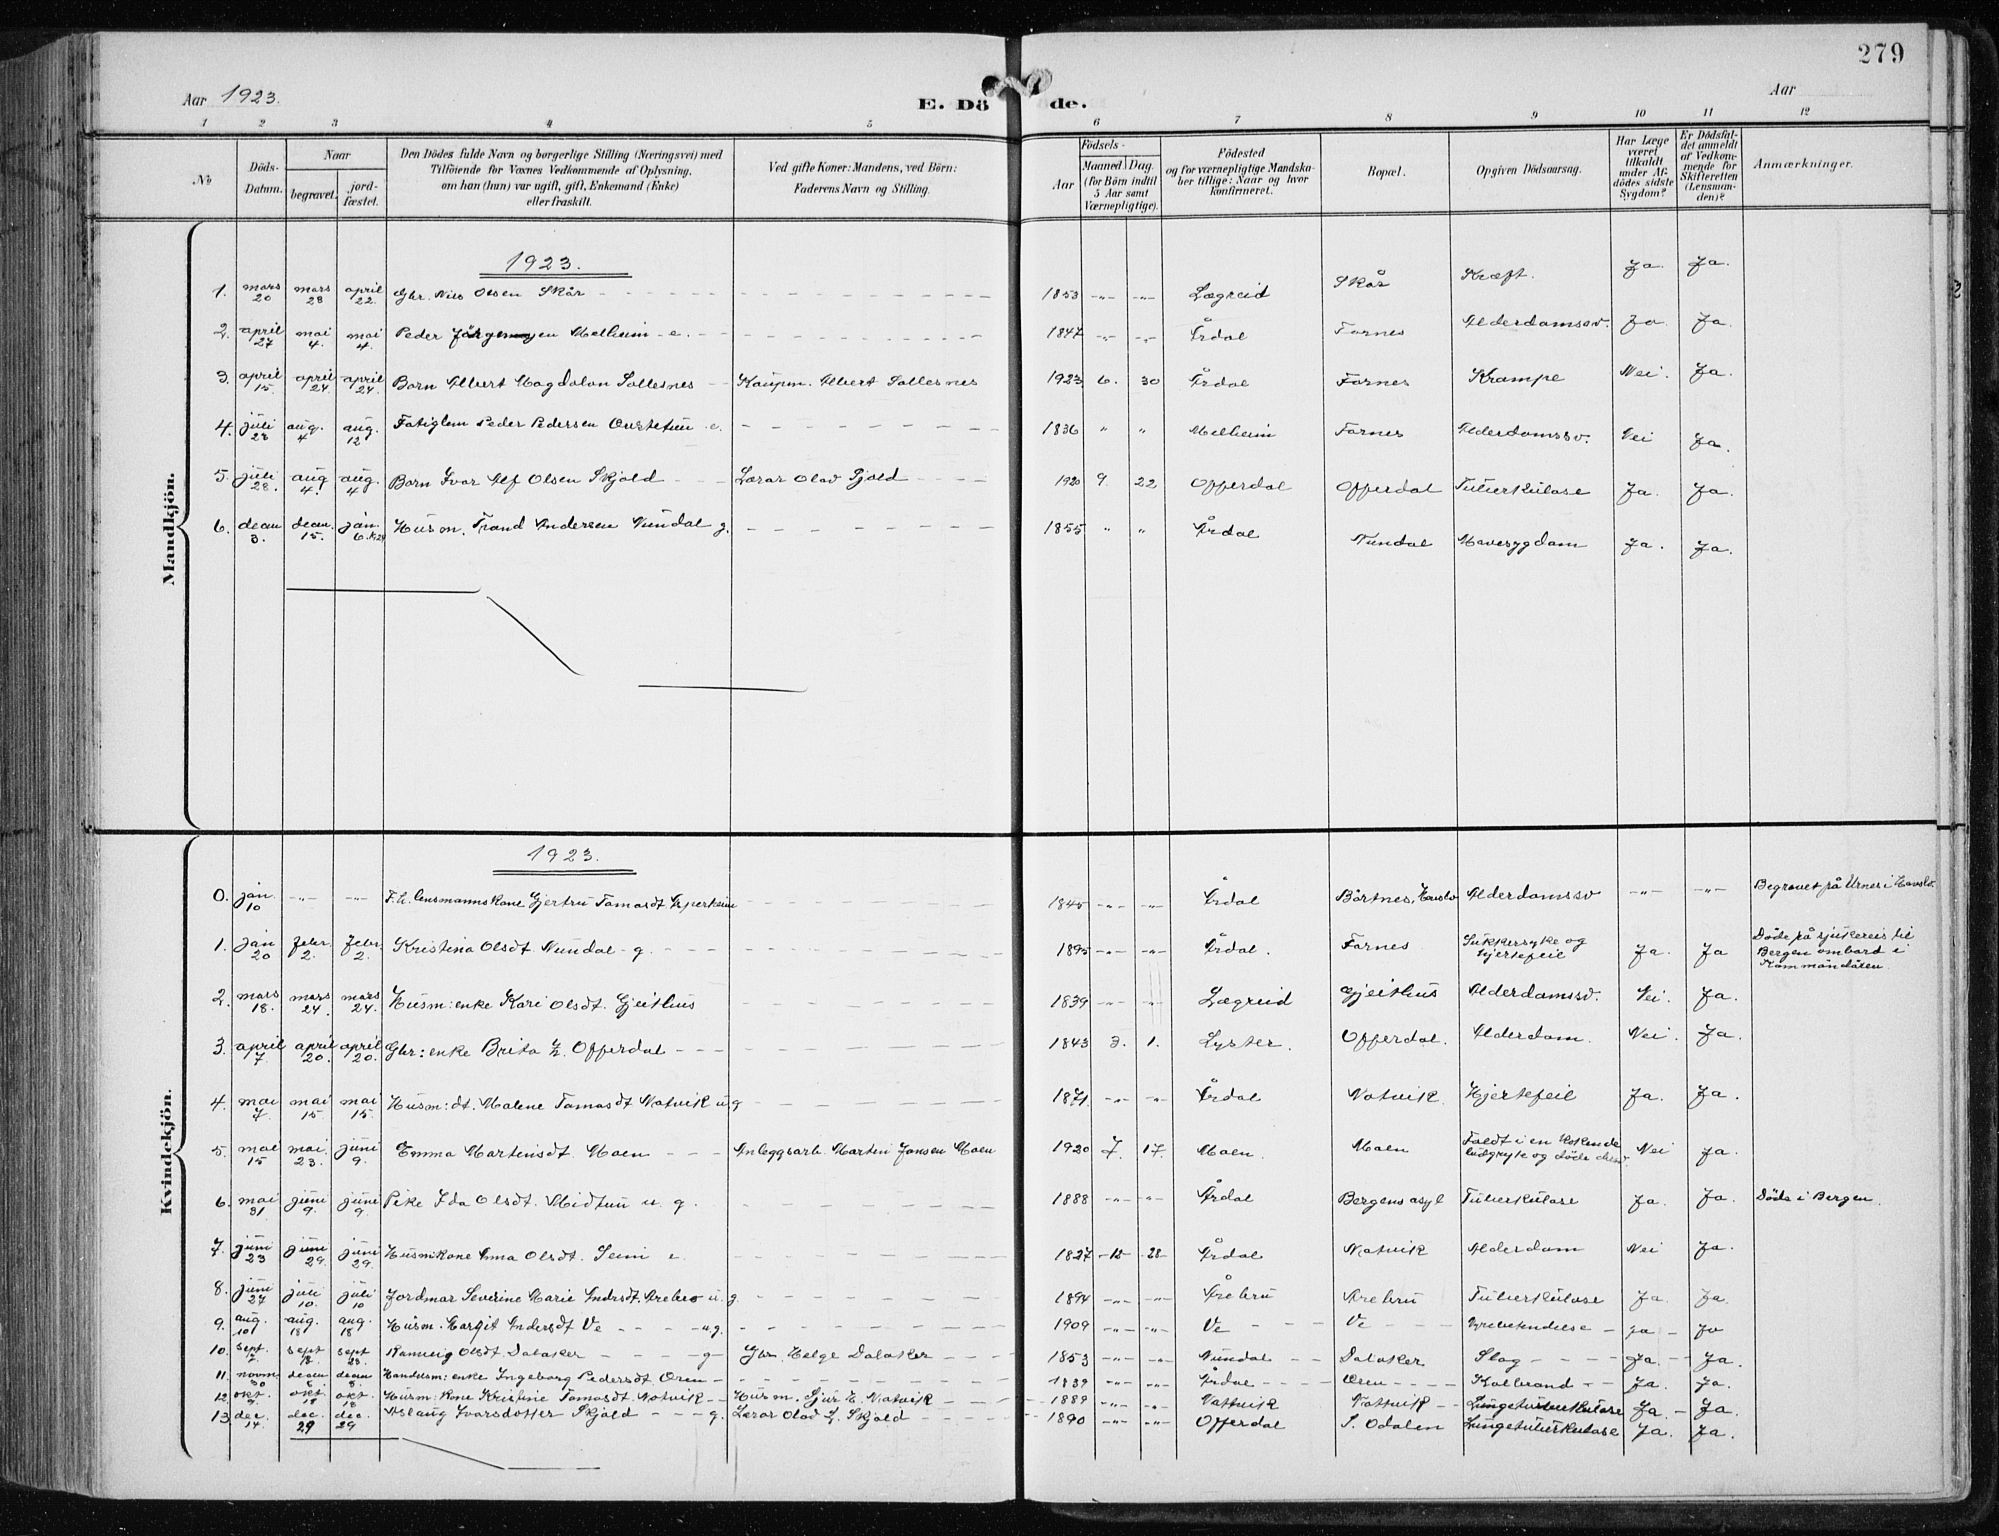 279
Aar 1923.
E. Dö de.
Aar
1 2 3 4 5 6 7 8 9 10 11 12
№
Döds-Datum.
Naar
begravet.
jord-fæstet.
Den Dödes fulde Navn og borgerlige Stilling (Næringsvei) med
Tilföiende for Voxnes Vedkommende af Oplysning,
om han (hun) var ugift, gift, Enkemand (Enke)
eller fraskilt.
Ved gifte Koner: Mandens, ved Börn:
Faderens Navn og Stilling.
Födsels-
Aar
Maaned. Dag.
(for Börn indtil
5 Aar samt
Værnepligtige).
Födested
og for værnepligtige Mandska-
ber tillige: Naar og hvor
konfirmeret.
Bopæl.
Opgiven Dödsaarsag.
Har Læge
været
tilkaldt
under Af-
dödes sidste
Sygdom?
Er Dödsfal-
det anmeldt
af Vedkom-
mende for
Skifteretten
(Lensman-
den)?
Anmærkninger.
Mandkjön.
1923.
1. mars 20 mars 28 april 22. Gbr. Nils Olsen Skår 1853 -„- -„- Lægreid Skår Kræft. Ja. Ja.
2. april 27 mai 4. mai 4. Peder Melheim e. 1847 -„- -„- Årdal Farnes Alderdomssv. Ja. Ja.
3. april 15 april 24 april 24. Barn Albert Magdalon Sollesnes Kaupm. Albert Sollesnes 1923 6. 30 Årdal Farnes Krampe Nei. Ja.
4. juli 28 aug. 4 aug. 12 Fatiglem Peder Pedersen e. 1836 „ „ Melheim Farnes Alderdomssv. Nei Ja.
5. juli 28. aug 4. aug. 4 Barn Ivar Alf Olsen Skjold Lærar Olav 1920 9. 22 Offerdal Offerdal Tuberkulose Ja. Ja.
6. desem 3. desem. 15. jan. 6. Husm. Trond Andersen Nundal g. 1855 „ „ Årdal Nundal Mavesygdom Ja. Ja.
Kvindekjön.
1923.
0. jan. 10 -„- -„- F.h. lensmannskone Gjertru Tomasdt 1845 -„- -„- Årdal Alderdomssv -„- -„- Begravet på Urnes i Hafslo.
1. jan 20 febr. 2. febr. 2. Kristina Olsdt Nundal - g. 1895 -„- -„- Årdal. Farnes Sukkersyke og hjertefeil Ja. Ja Døde på sjukereis til
Bergen ombord i
Kommandøren.
2. mars 18. mars 24. mars 24. Husm: enke Kari Olsdt. Gjeithus 1839 -„- -„- Lægreid Gjeithus Alderdomssv. Nei. Ja.
3. april 7 april 20. april 20. Gbr: enke Brita L. Offerdal 1843 3. 1. Lyster. Offerdal. Alderdom. Nei. Ja.
4. mai 7. mai 15 mai 15. Husm: dt. Malene Tomasdt Natvik u. g 1871. -„- -„- Årdal Natvik. Hjertefeil Ja. Ja.
5. mai 15 mai. 23. juni 9. Emma Martinsdt. Moen Anleggsarb. Martin Jansen Moen 1920 7. 17. Moen. Moen Faldt i en kokende
lutgryte og døde derav. Nei Ja.
6. mai 31 juni 9. juni 9 Pike Ida Olsdt. Midtun u. g. 1888 -„- -„- Årdal Bergens asyl Tuberkulose Ja. Ja. Døde i Bergen.
7. juni 23 juni 29. juni 29. Husm:kone Anna Olsdt. Seim e. 1827 12 28 Årdal Natvik Alderdom Nei Ja.
8. juni 27 juli 10. juli 10 Jordmor Severine Marie Andrsdt. Årebro u. g. 1894 -„- -„- Årebru Årebru Tuberkulose Ja. Ja.
9. aug. 10 aug. 18 aug. 18 Husm. Margit Andersdt Ve u g. 1909 -„- -„- Ve Ve Ja. Ja
10. sept. 7. sept 18. sept 23. Rannveig Olsdt Dalaker g Gbr. Helge Dalaker 1853 -„- -„- Nundal Dalaker Slag Ja. Ja.
11. novm 30 desem 8. desem 8. Handelsm: enke Ingeborg Pedersdt Øren 1839 -„- -„- Årdal Øren Koldbrand Ja. Ja.
12. okt. 9 okt. 18 okt. 18 Husm: kone Kristine Tomasdt. Natvik Husm. Sjur E. Natvik 1889 -„- „ Nattvik Nattvik Lungetuberkulose Ja. Ja.
13. dec. 14. dec. 29 dec. 29 Aslaug Ivarsdotter Skjold g. Lærar Olav L. Skjold 1890 -„- „ Offerdal S. Odalen Lungetuberkulose Ja. Ja.